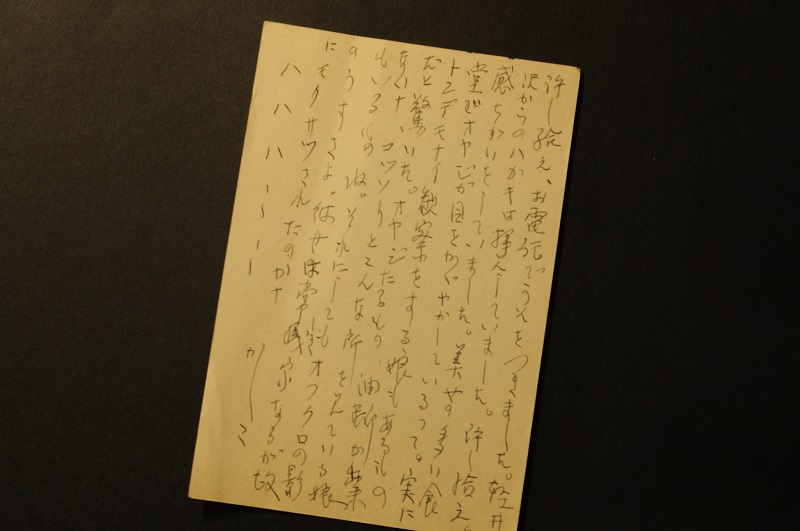 許し給え、お電話でうそをつきました。軽井
沢からのハガキは拝んしていました。許し給え。
感ちがいをしていました。美女の多い食
堂でオヤジが目をかがやかしているって。実に
トンデモナイ観察をする娘もあるもの
だと驚いた。オヤジたるもの油断が出来
ないナ、コッソリとどんな所を見ている娘
もいるもの故。それにしてもオフクロの影
のうすさよ。彼女は常識家なるが故
にモクサツされたのかナ
ハハハ、、、、 かしこ